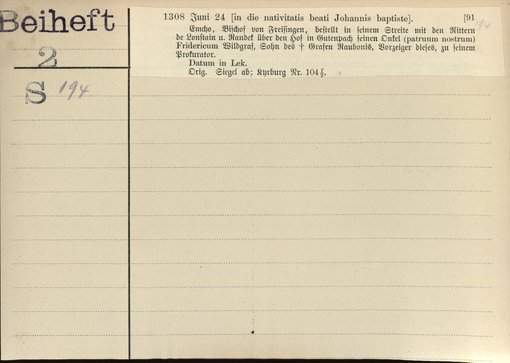 Beiheft
2
S 194
1308 Juni 24 [in die nativitatis beati Johannis baptiste]. [91
194
Emcho, Bischof von Freisingen, bestellt in seinem Streite mit den Rittern
de Lonstain u. Randek über den Hof in Gutenpach seinen Onkel (patruum nostrum)
Fridericum Wildgraf, Sohn des † Grafen Raubonis, Vorzeiger dieses, zu seinem
Prokurator.
Datum in Lek.
Orig. Siegel ab; Kyrburg Nr. 104